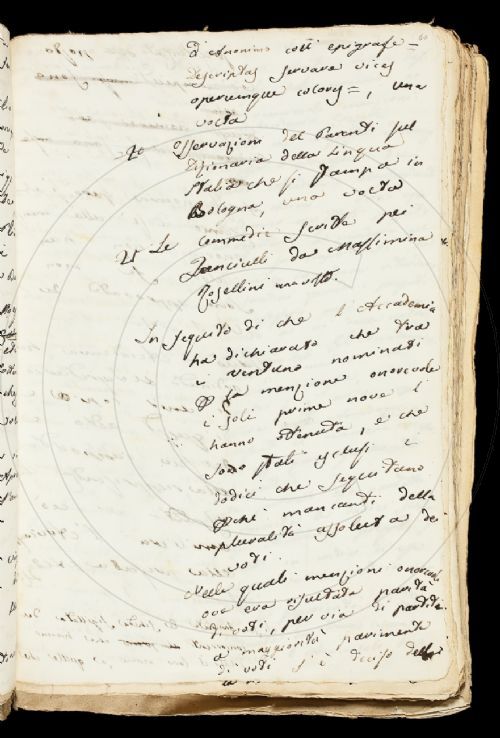 d'Anonimo coll' epigrafe =
Descriptas servare vices
operumque colores =, una
volta
20 Osservazioni del Parenti sul
Dizionario della Lingua
Italia che si stampa in
Bologna, una volta
21 Le Commedie scritte pei
Fanciulli da Massimina
Rosellini una volta.
In seguito di che l'Accademia
ha dichiarato che tra
i ventuno nominati
la menzione onorevole
i soli primi nove l'
hanno ottenuta, e che
sono stati esclusi i
dodici che seguitano
perchè mancanti della
pluralità assoluta dei
voti.
Nelle quali menzioni onorevoli
ove era risultata parità
di voti, per via di partito
a maggiorità parimente
di voti si è deciso della